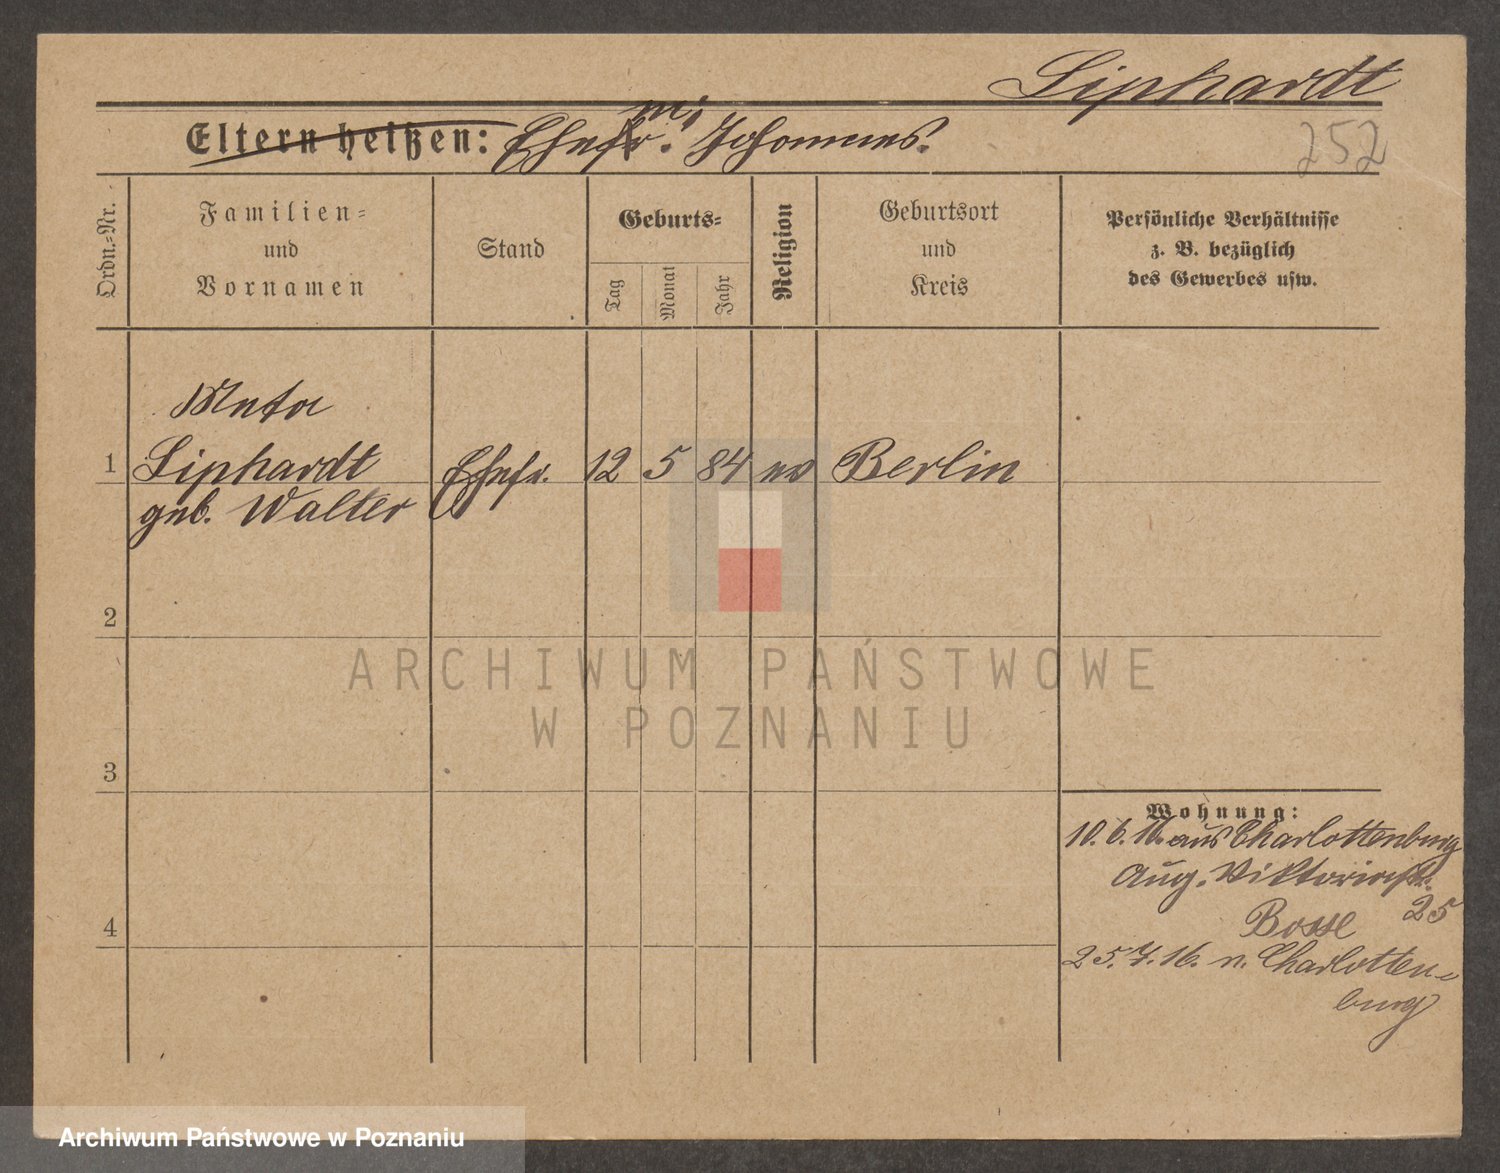 Liphardt
252
Eltern heißen: Ehefr. Johannes.
Ordn.-Nr.
Familien-
und
Vornamen
Stand
Geburts-
Tag
Monat
Jahr
Religion
Geburtsort
und
Kreis
Persönliche Verhältnisse
z. B. bezüglich
des Gewerbes usw.
Meta
1 Liphardt Ehefr. 12 5 84 ev Berlin
geb. Walter
2
3
4
Wohnung:
10. 6. 16. aus Charlottenburg
Aug. Viktoriastr.
25
Bosse
25. 7. 16. n. Charlotten-
burg
ARCHIWUM PAŃSTWOWE
W POZNANIU
Archiwum Państwowe w Poznaniu